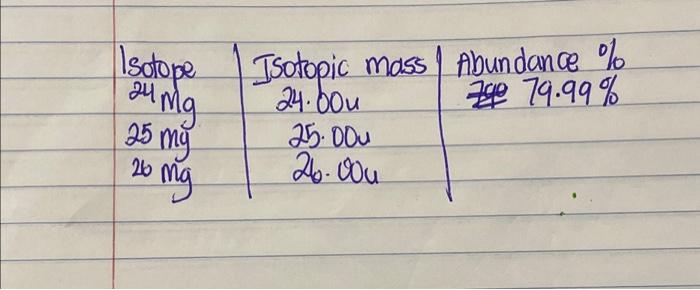 Isotope | Isotopic mass | Abundance %
24 Mg 24.00u 79.99%
25 mg 25.00u
26 mg 26.00u